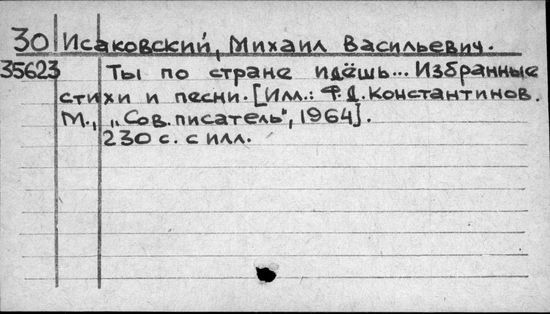 30 Исаковский, Михаил Васильевич.
35623 Ты по стране идёшь... Избранные
стихи и песни. [Илл.: Ф.Д. Константинов.
М., „Сов. писатель", 1964].
230 с. с илл.